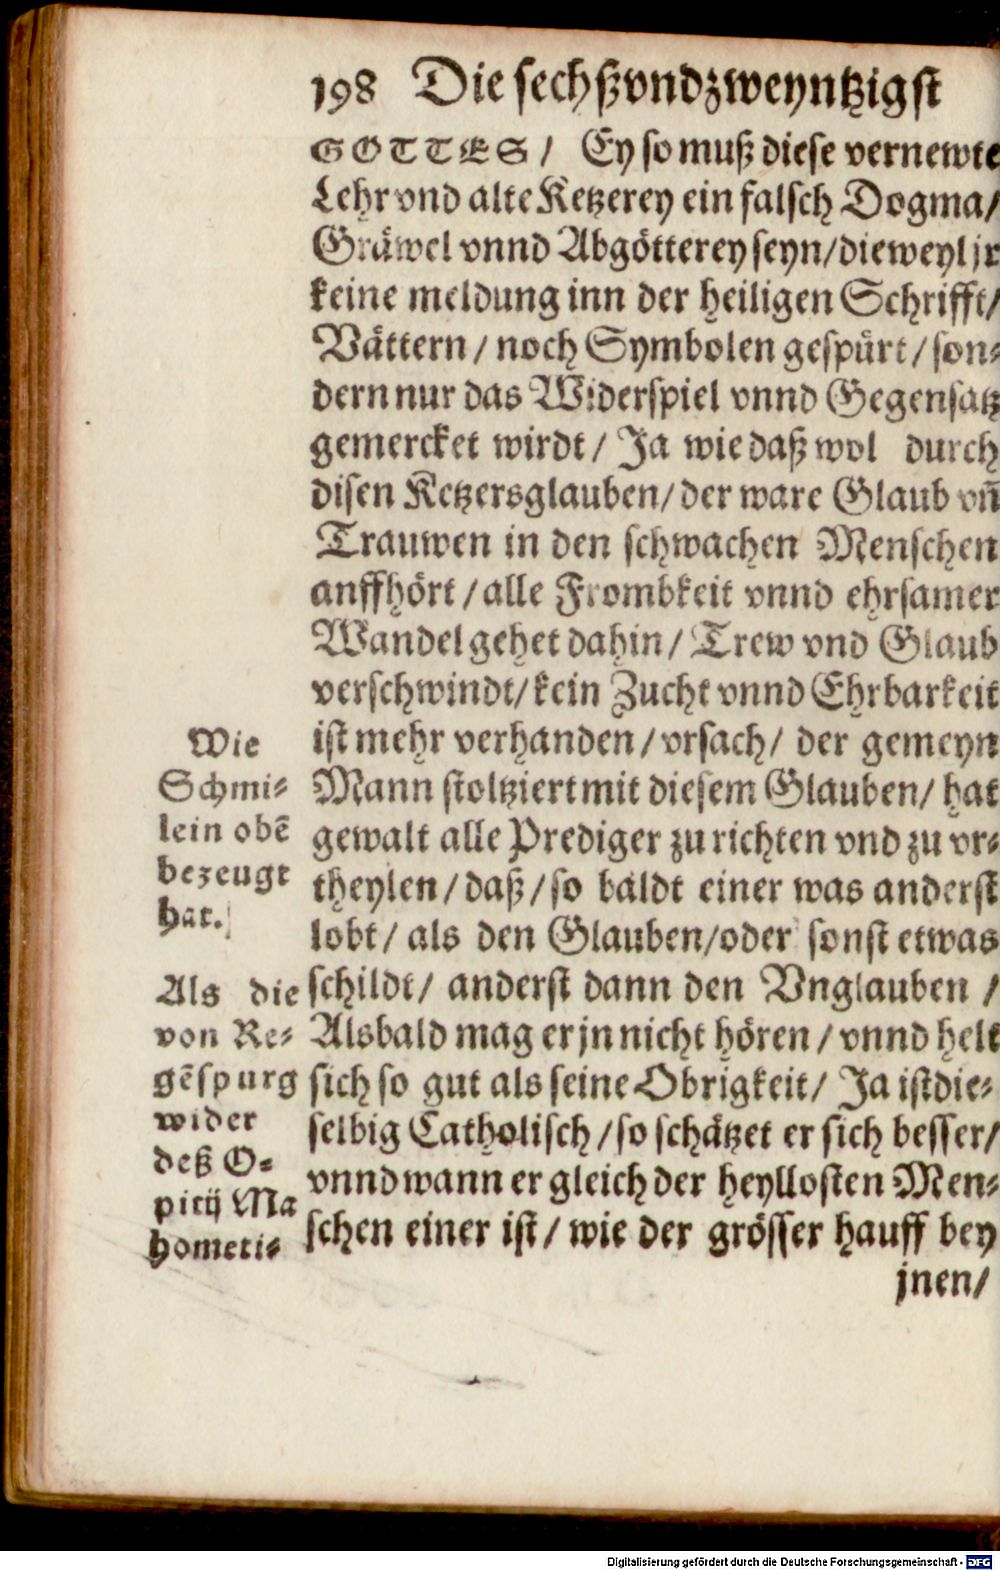 198 Die sechßvndzweyntzigst
GOTTES / Ey so muß diese vernewte
Lehr vnd alte Ketzerey ein falsch Dogma/
Gräwel vnnd Abgötterey seyn/dieweyl jr
keine meldung inn der heiligen Schrifft/
Vättern / noch Symbolen gespürt / son⸗
dern nur das Widerspiel vnnd Gegensatz
gemercket wirdt / Ja wie daß wol durch
disen Ketzersglauben/der ware Glaub vñ
Trauwen in den schwachen Menschen
auffhört / alle Frombkeit vnnd ehrsamer
Wandel gehet dahin / Trew vnd Glaub
verschwindt/kein Zucht vnnd Ehrbarkeit
ist mehr verhanden / vrsach / der gemeyn
Mann stoltziert mit diesem Glauben/ hat
gewalt alle Prediger zu richten vnd zu vr⸗
theylen / daß / so baldt einer was anderst
lobt / als den Glauben/oder sonst etwas
schildt/ anderst dann den Vnglauben /
Alsbald mag er jn nicht hören / vnnd helt
sich so gut als seine Obrigkeit/ Ja ist die⸗
selbig Catholisch / so schätzet er sich besser/
vnnd wann er gleich der heyllosten Men⸗
schen einer ist / wie der grösser hauff bey
jnen/
Wie
Schmi⸗
lein obē
bezeugt
hat.
Als die
von Re⸗
gēspurg
wider
deß O⸗
pitij Ma
hometi⸗
Digitalisierung gefördert durch die Deutsche Forschungsgemeinschaft - DFG